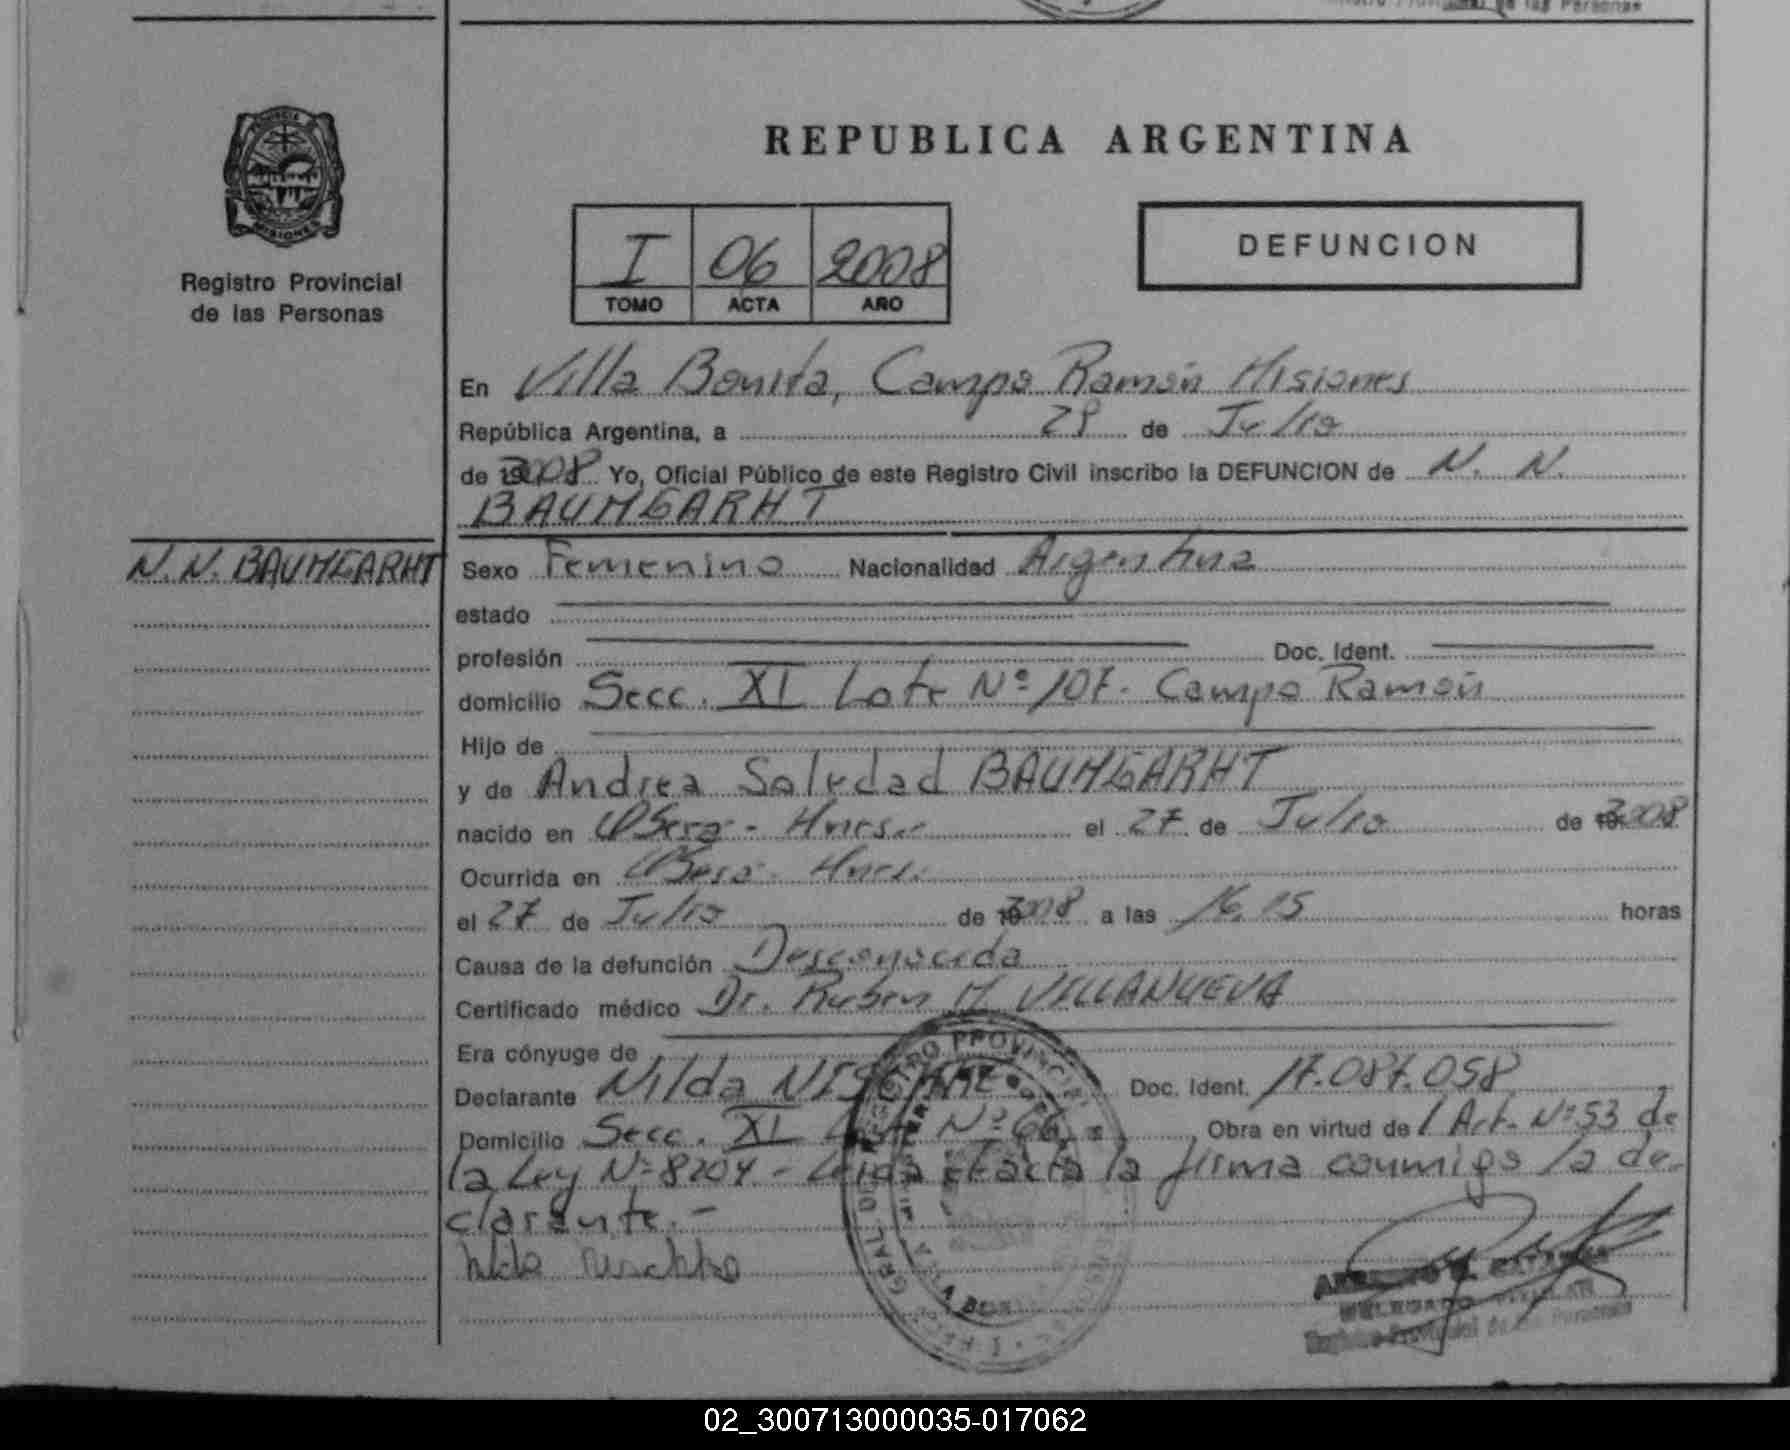 de las Personas
PROVINCIA DE
MISIONES
Registro Provincial
de las Personas
REPUBLICA ARGENTINA
I 06 2008
TOMO ACTA AÑO
DEFUNCION
En Villa Bonita, Campo Ramón Misiones
República Argentina, a 29 de Julio
de 2008 Yo, Oficial Público de este Registro Civil inscribo la DEFUNCION de N. N.
BAUMGARHT
N. N. BAUMGARHT
Sexo Femenino Nacionalidad Argentina
estado
profesión Doc. Ident.
domicilio Secc. XI Lote Nº 107. Campo Ramón
Hijo de
y de Andrea Soledad BAUMGARHT
nacido en Oberá - Mnes. el 27 de Julio de 2008
Ocurrida en Oberá - Mnes.
el 27 de Julio de 2008 a las 16,15 horas
Causa de la defunción Desconocida
Certificado médico Dr. Ruben M VILLANUEVA
Era cónyuge de
Declarante Nilda Doc. Ident. 17.087.058
Domicilio Secc. XI Nº 66 Obra en virtud de l Art. Nº 53 de
la Ley Nº 8204 - Leida el acta la firma conmigo la de-
clarante. -
DELEGADO TITULAR
Registro Provincial de las Personas
02_300713000035-017062